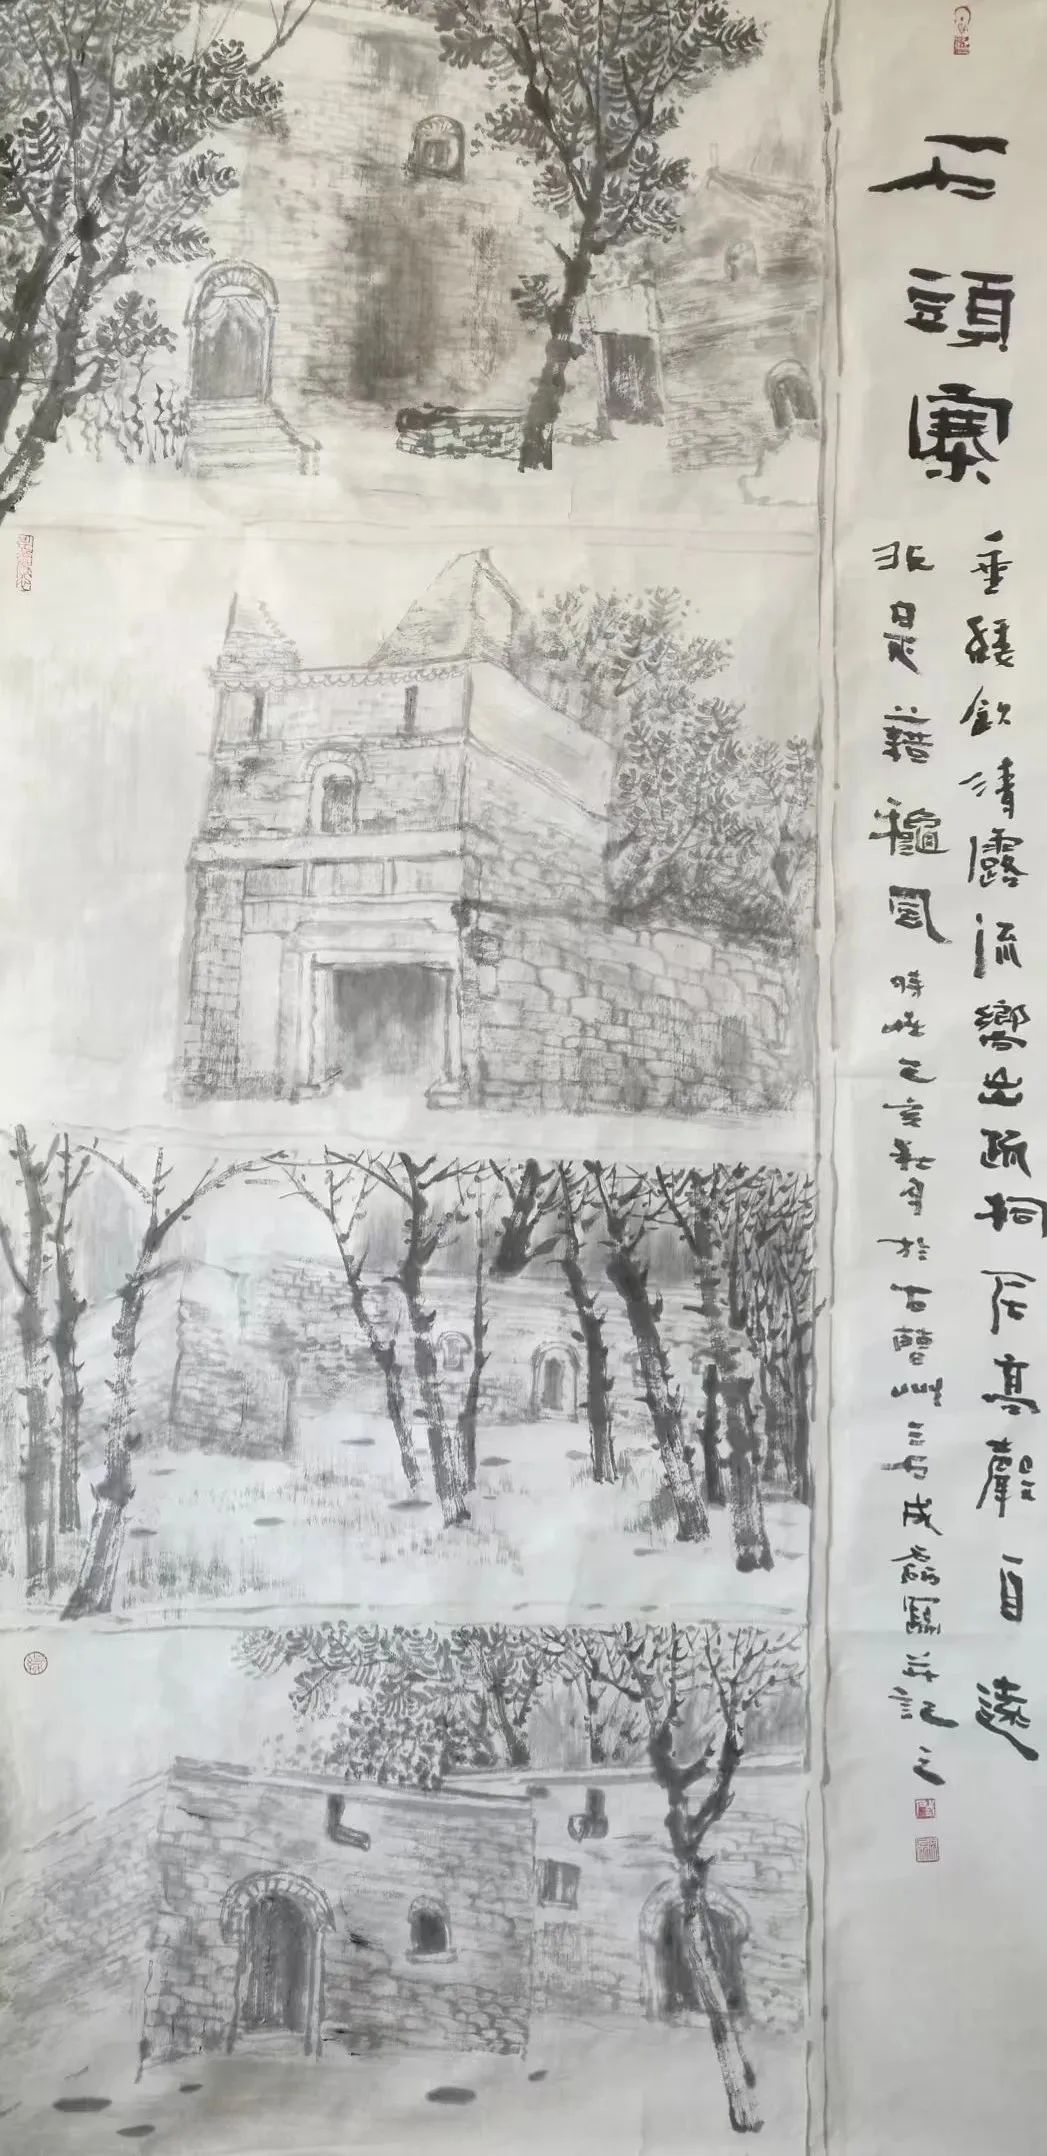 石頭寨
垂緌飲清露流響出疏桐居高聲自遠
非是藉龝風時己亥秋月於古曹州成磊寫并記之